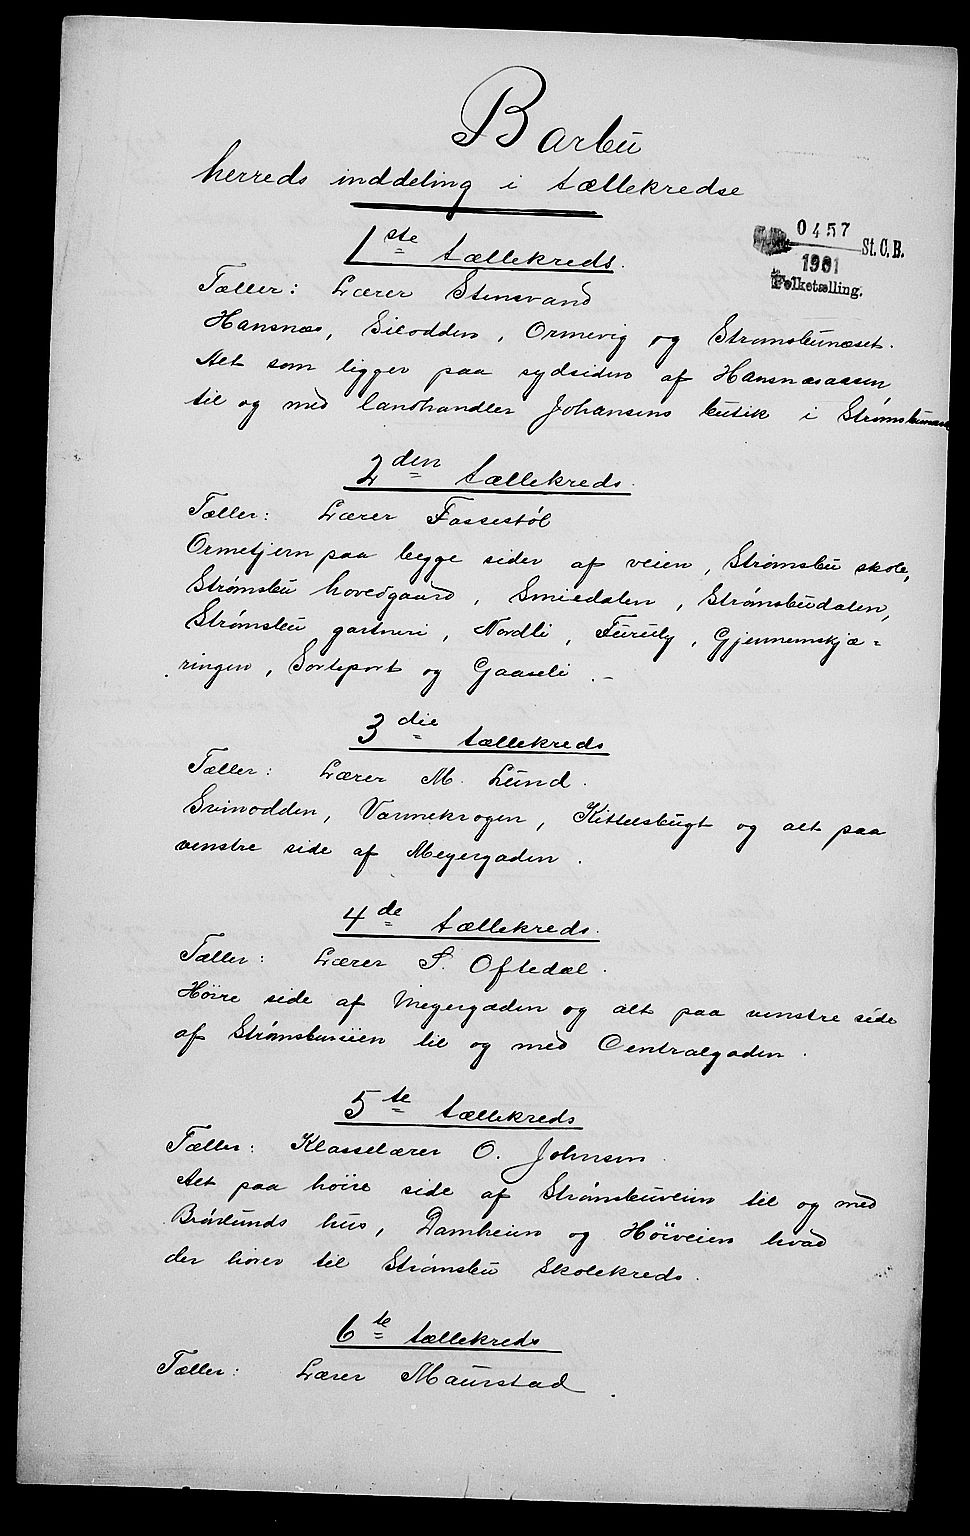 Barbu
herreds inddeling i tællekredse
0457
St. C. B.
1901
Folketælling.
1ste tællekreds.
Tæller: Lærer Stensvand
Hansnæs, Silodden, Ormevig og Strømsbunæset.
Alt som ligger paa sydsiden af Hansnæsaasen
til og med landhandler Johansens butik i Strømsbunæs
2den tællekreds.
Tæller: Lærer Fossestøl
Ormetjern paa begge sider af veien, Strømsbu skole,
Strømsbu hovedgaard, Smiedalen, Strømsbudalen,
Strømsbu gartneri, Nordli, Furuly, Gjennemskjæ=
ringen, Sorteport og Gaaseli.–
3die tællekreds
Tæller: Lærer M. Lund.
Svinodden, Varmekrogen, Kittelsbugt og alt paa
venstre side af Meyergaden.
4de tællekreds.
Tæller: Lærer S. Oftedal.
Høire side af Meyergaden og alt paa venstre side
af Strømsbuveien til og med Centralgaden.
5te tællekreds
Tæller: Klasselærer O. Johnsen.
Alt paa høire side af Strømsbuveien til og med
Brølunds hus, Damheien og Høiveien hvad
der hører til Strømsbu Skolekreds.
6te tællekreds
Tæller: Lærer Maurstad.